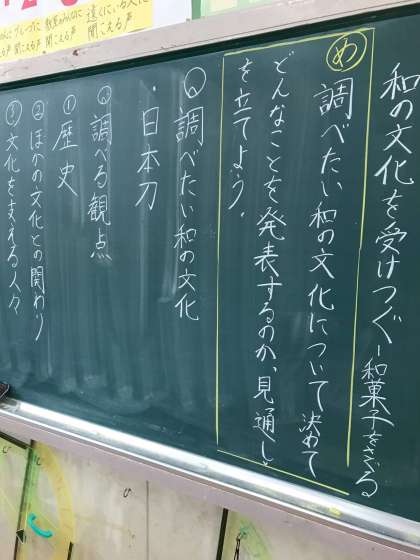 和の文化を受けつぐー和菓子をさぐる
め
調べたい和の文化について決めて
どんなことを発表するのか、見通し
を立てよう。
調べたい和の文化
・日本刀
調べる観点
①歴史
②ほかの文化との関わり
③文化を支える人々
遠くにいる人に
聞こえる声
教室のみんなに
聞こえる声
グループに
聞こえる声